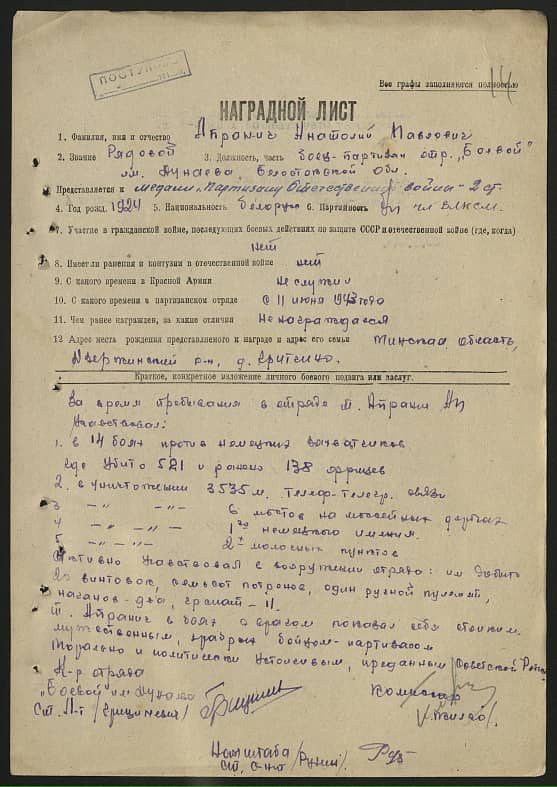 ПОСТУП
Все графы заполняются полностью
НАГРАДНОЙ ЛИСТ
1. Фамилия, имя и отчество Атранич Анатолий Павлович
2. Звание Рядовой 3. Должность, часть боец-партизан отр. „Боевой"
им. Дунаева, Белостокской обл.
Представляется к медали „Партизану Отечественной войны - 2 ст.
4. Год рожд. 1924 5. Национальность белорус 6. Партийность чл ВЛКСМ.
7. Участие в гражданской войне, последующих боевых действиях по защите СССР и отечественной войне (где, когда)
нет
8. Имеет ли ранения и контузии в отечественной войне нет
9. С какого времени в Красной Армии не служил
10. С какого времени в партизанском отряде с 11 июня 1943 года
11. Чем ранее награжден, за какие отличия Не награждался
12 Адрес места рождения представляемого к награде и адрес его семьи Минская область,
Дзержинский р-н, д.
Краткое, конкретное изложение личного боевого подвига или заслуг.
За время пребывания в отряде т. Атранич АП
участвовал:
1. в 14 боях против немецких захватчиков
где убито 521 и ранено 138 фрицев
2. в уничтожении 3535 м. телеф-телегр. связи
3 -„- -„- 6 мостов на шоссейных дорогах
4 -„- -„- 1го немецкого имения.
5 -„-„- 2х молочных пунктов
Активно участвовал в вооружении отряда: им добыто
винтовок, семьсот патронов, один ручной пулемет,
наганов - два, гранат - 11.
т. Атранич в боях с врагом показал себя стойким,
мужественным, храбрым бойцом-партизаном
Морально и политически устойчивым, преданным Советской
К-р отряда
„Боевой" им Дунаева комиссар
Ст. Л-т
Нач штаба
ст. с-нт